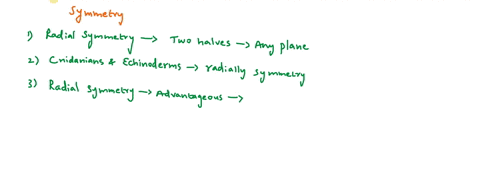 Symmetry
1) Radial Symmetry → Two halves → Any plane
2) Cnidarians & Echinoderms → radially symmetry
3) Radial symmetry → Advantageous →